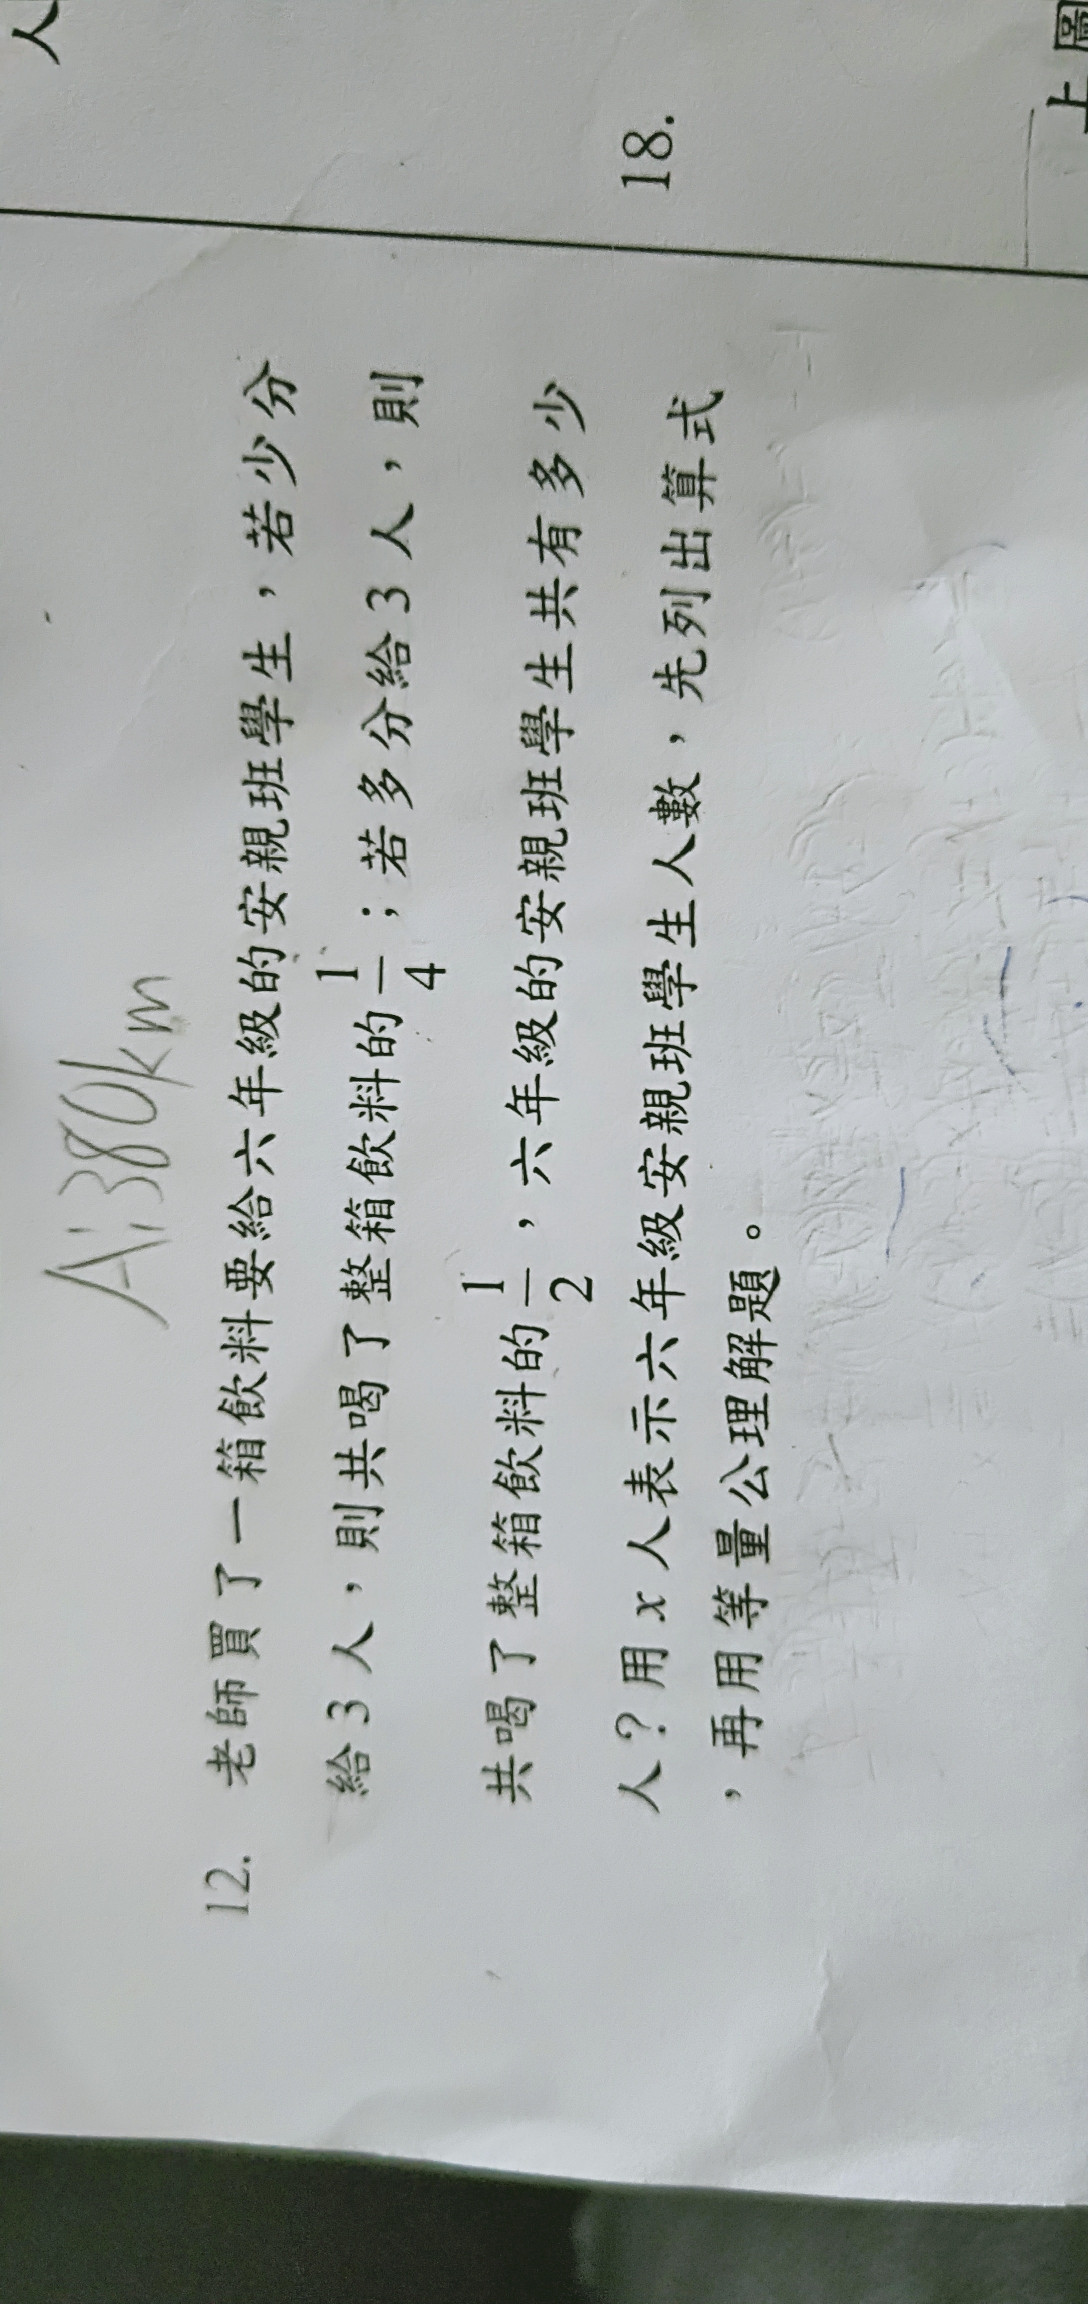 人
A:380km
12. 老師買了一箱飲料要給六年級的安親班學生，若少分
給3人，則共喝了整箱飲料的1/4；若多分給3人，則
共喝了整箱飲料的1/2，六年級的安親班學生共有多少
人？用x人表示六年級安親班學生人數，先列出算式
，再用等量公理解題。
18.
上圖